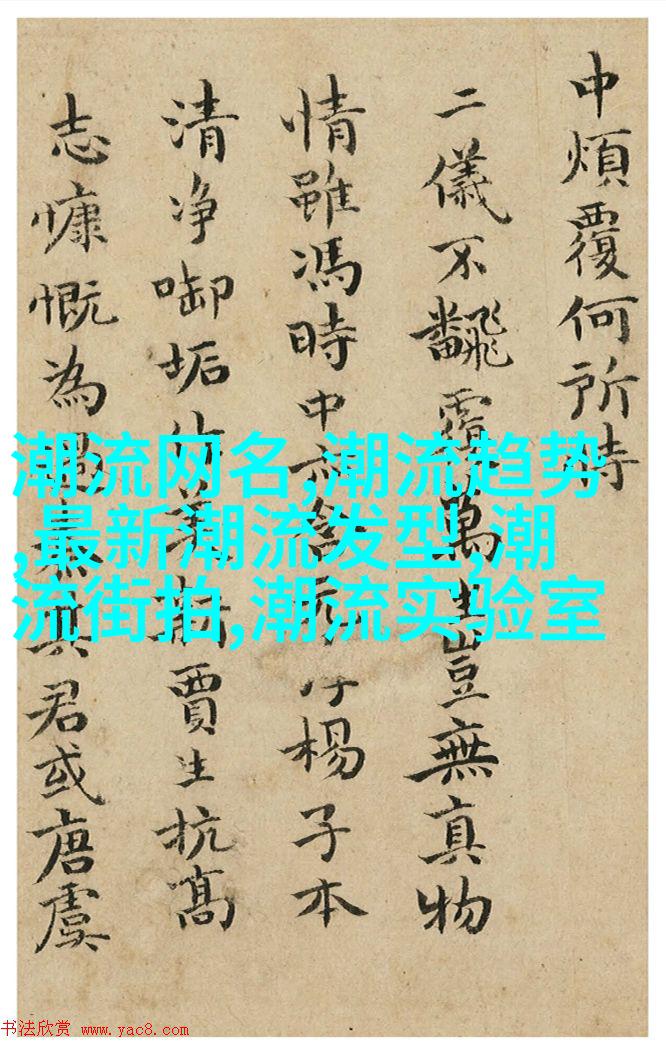 中煩覆何所
二儀不飜覆萬生豈無真物
情雖馮時中含楊子本
清净啣垢賈生抗髙
志慷慨為君或唐虞
潮流网名,潮流趋势
,最新潮流发型,潮
流街拍,潮流实验室
书法欣赏 www.yac8.com